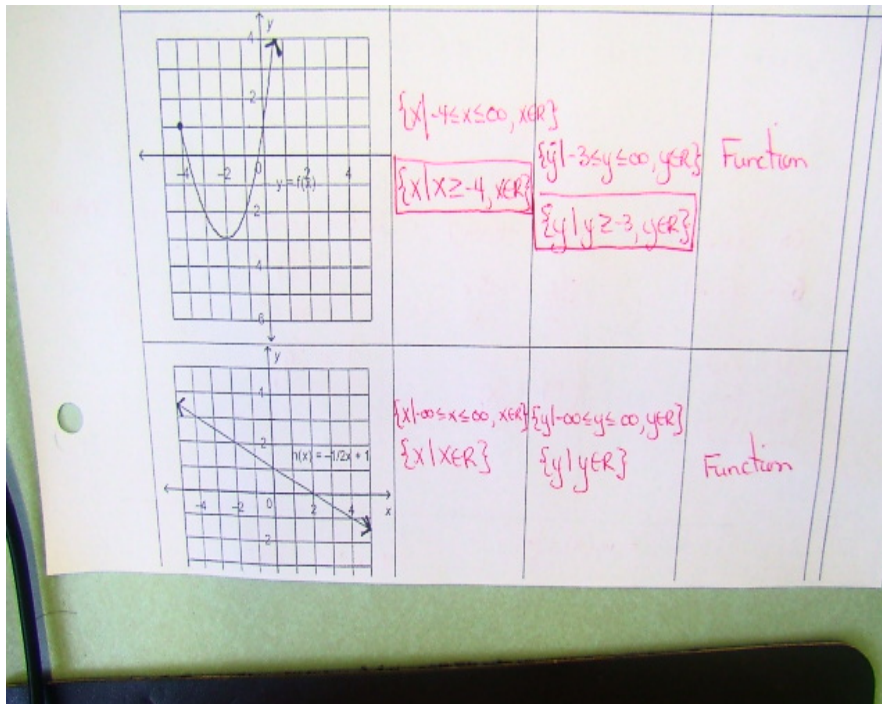 y
4
2
-4 -2 0 2 4
y = f(x)
2
4
6
{x|-4≤x≤∞, x∈R}
{x|x≥-4, x∈R}
{y|-3≤y≤∞, y∈R}
{y|y≥-3, y∈R}
Function
y
4
2
h(x) = -1/2x + 1
-4 -2 0 2 4
x
2
{x|-∞≤x≤∞, x∈R}
{x|x∈R}
{y|-∞≤y≤∞, y∈R}
{y|y∈R}
Function